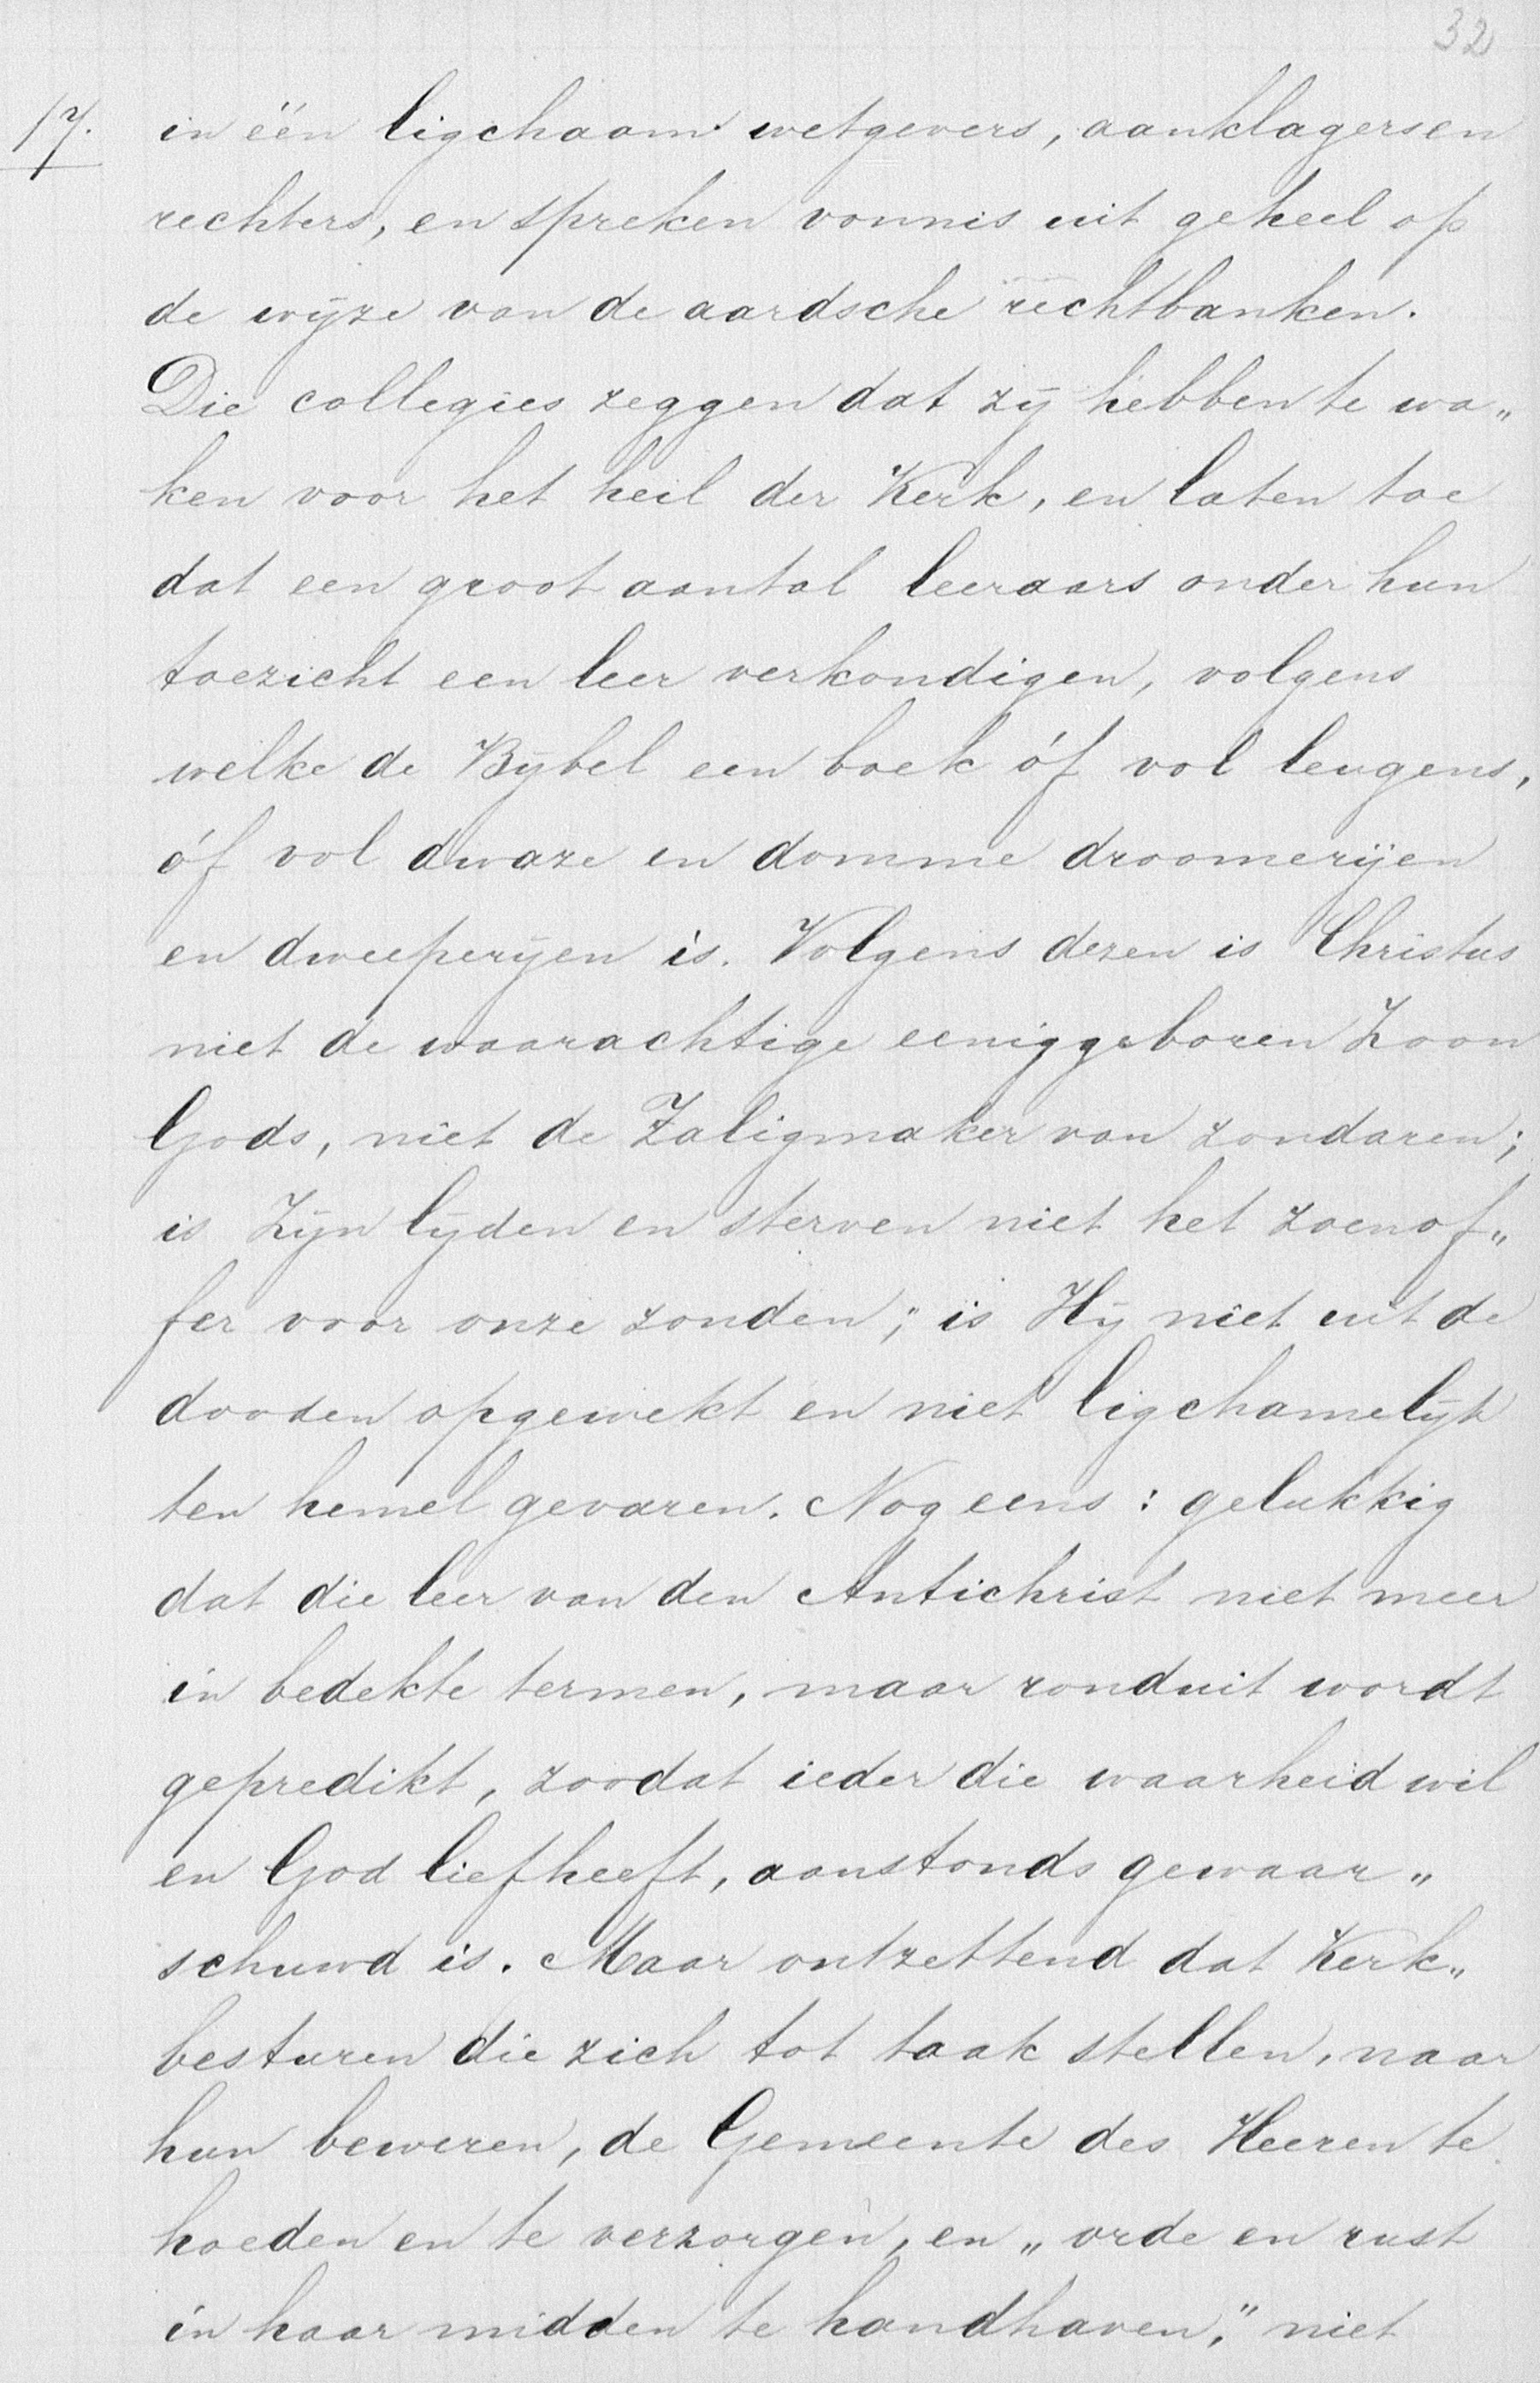 32
17. in één ligchaam wetgevers, aanklagers en
rechters, en spreken vonnis uit geheel op
de wijze van de aardsche rechtbanken.
Die collegies zeggen dat zij hebben te wa„
ken voor het heil der Kerk, en laten toe
dat een groot aantal leeraars onder hun
toezicht een leer verkondigen, volgens
welke de Bijbel een boek óf vol leugens,
óf vol dwaze en domme droomerijen
en dweeperijen is. Volgens dezen is Christus
niet de waarachtige eeniggeboren Zoon
Gods, niet de Zaligmaker van zondaren;
is Zijn lijden en sterven niet het zoenof„
fer voor onze zonden; is Hij niet uit de
dooden opgewekt en niet ligchamelijk
ten hemel gevaren. Nog eens: gelukkig
dat die leer van den Antichrist niet meer
in bedekte termen, maar ronduit wordt
gepredikt, zoodat ieder die waarheid wil
en God liefheeft, aanstonds gewaar„
schuwd is. Maar ontzettend dat Kerk„
besturen die zich tot taak stellen, naar
hun beweren, de Gemeente des Heeren te
hoeden en te verzorgen, en „orde en rust
in haar midden te handhaven," niet